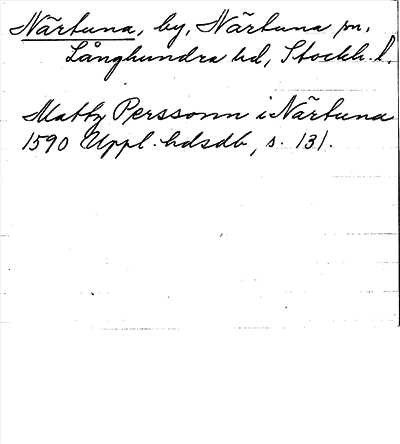 Närtuna, by, Närtuna sn,
Långhundra hd, Stockh. l.
Matts Perssonn i Närtuna
1590 Uppl. hdsdb, s. 131.